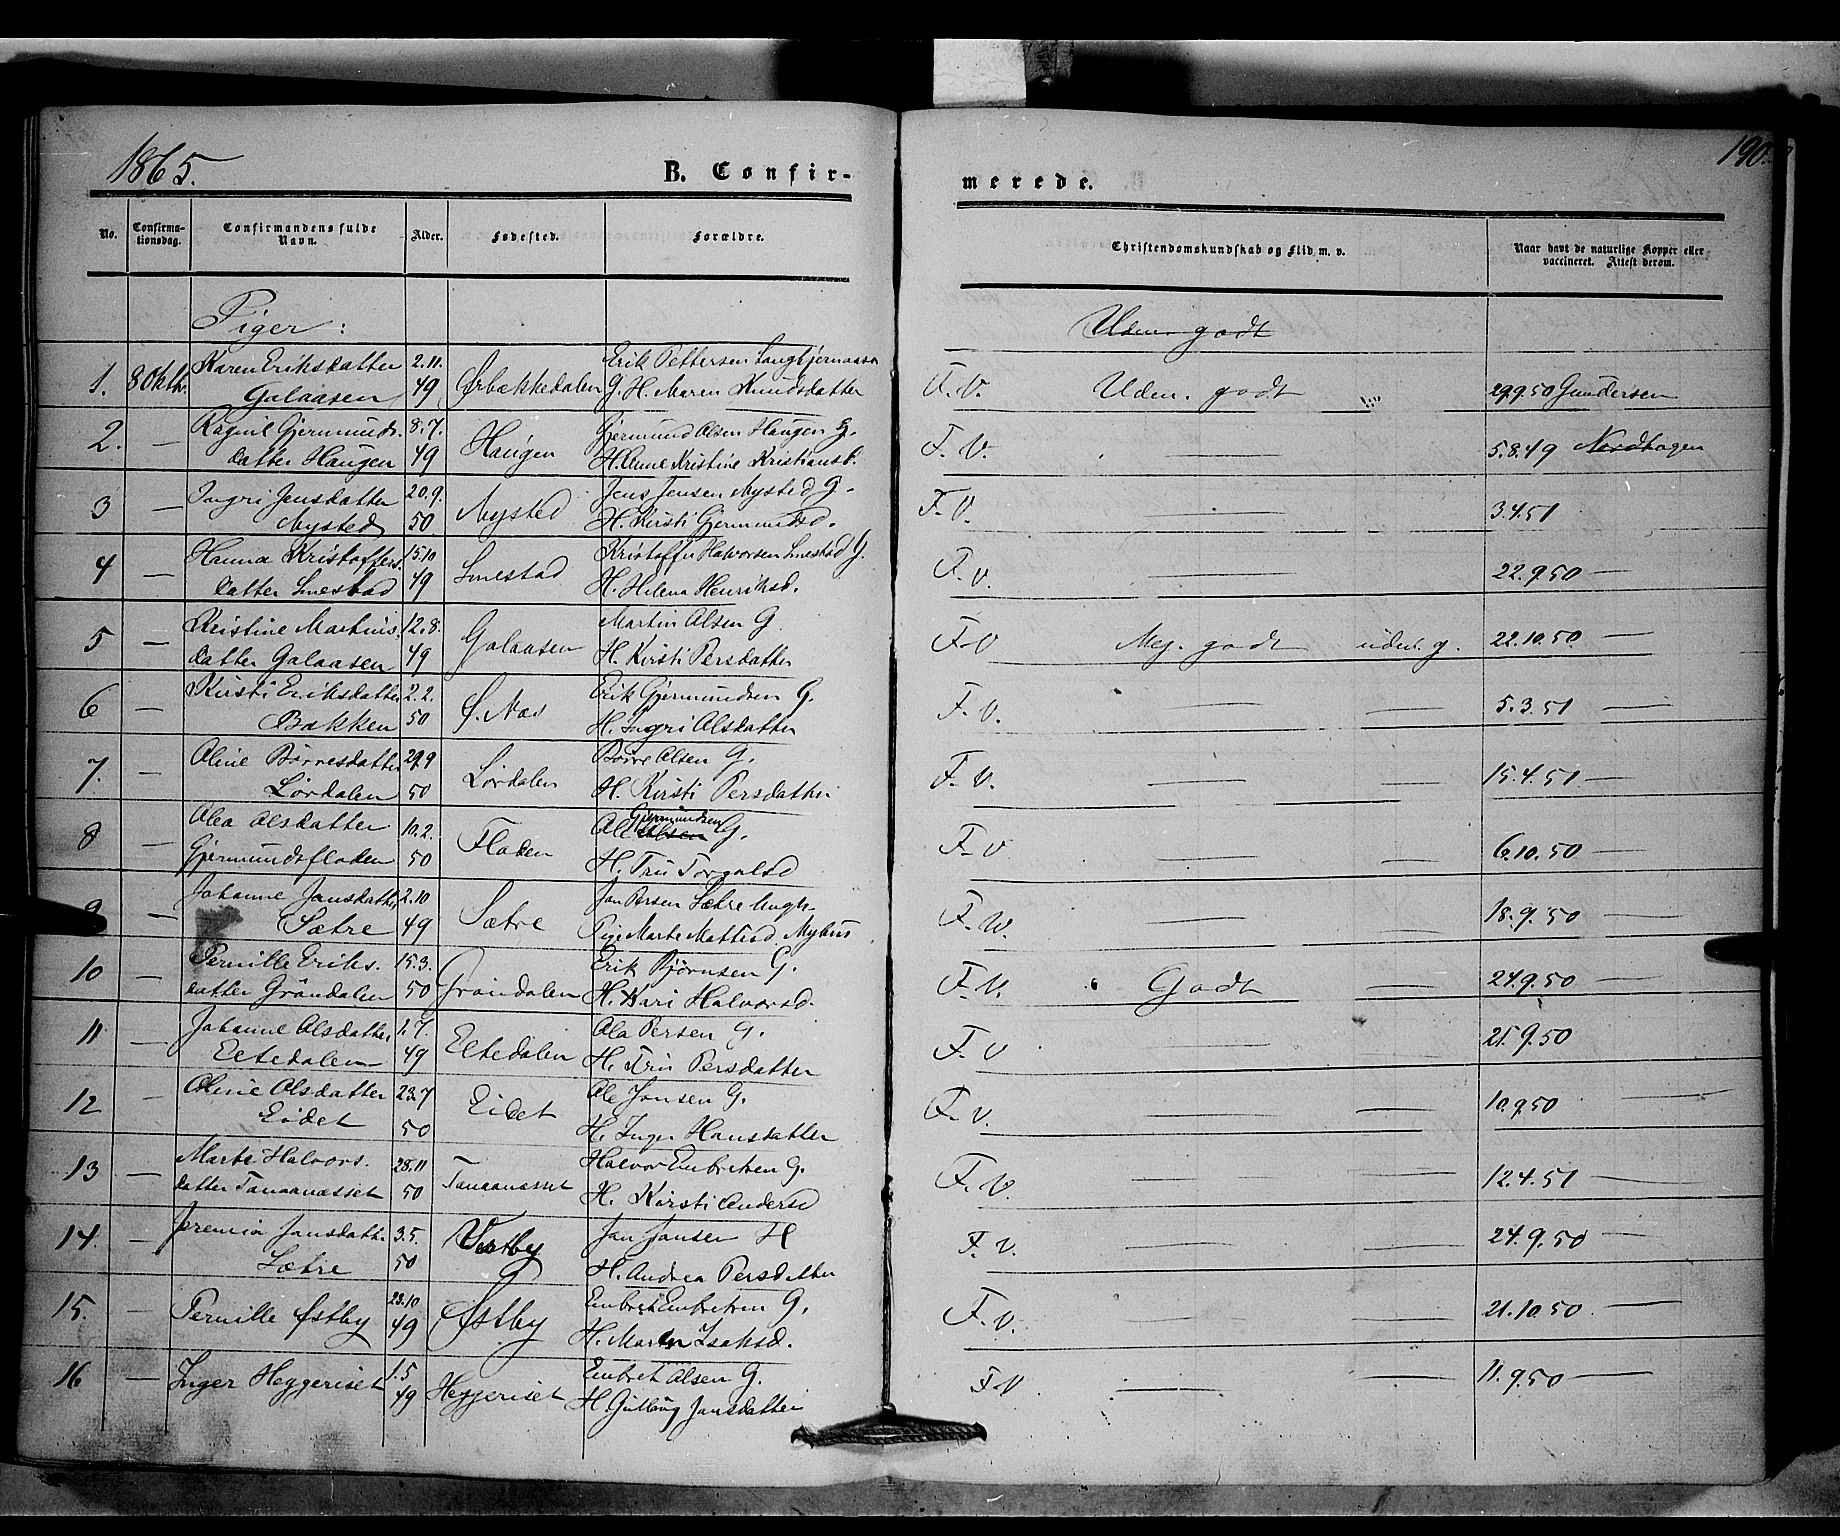 1865.
B. Confir-
merede.
190.
No.
Confirma-
tionsdag.
Confirmandens fulde
Navn.
Alder.
Fødested.
Forældre.
Christendomskundskab og Flid m. v.
Naar havt de naturlige Kopper eller
vaccineret. Attest derom.
Piger:
Uden. godt
1. 8 Oktbr. Karen Eriksdatter 2.11. Erik Pettersen
Galaasen 49 Ørbækkedalen G. H. Maren Knudsdatter F. V. Uden. godt 29.9.50 Gundersen
2. — Ragnil Gjermunds. 8.7. Haugen Gjermund Olsen Haugen G.
datter Haugen 49 H. Anne Kristine Kristiansd. F. V. — 5.8.49 Nordhagen
3 — Ingri Jensdatter 20.9. Nysted Jens Jensen Nysted G.
Nysted 50 H. Kirsti Gjermundsd. F. V. — 3.4.51
4 — Hanna Kristoffers. 15.10 Smestad Kristoffer Halvorsen Smestad G.
datter Smestad 49 H. Helena Henriksd. F. V. — 22.9.50 —
5 — Kristine Martins. 12.8. Galaasen Martin Olsen G.
datter Galaasen 49 H. Kirsti Persdatter F. V Meg. godt uden. g. 22.10.50 —
6 — Kirsti Eriksdatter 2.2. Erik Gjermundsen G.
Bakken 50 H. Ingri Olsdatter F. V. — — 5.3.51 —
7. — Oline Børresdatter 29.9 Lørdalen Børre Olsen G.
Lørdalen 50 H. Kirsti Persdatter F. V. — — 15.4.51 —
8 — Olea Olsdatter 10.2. Floden Ole Gjermundsen Olsen G.
Gjermundsfloden 50 H. Tru F. V — — 6.10.50 —
9 — Johanne Jansdatter 2.10 Sætre Jan Persen Sætre Ungk.
Sætre 49 Pige Marte Mattisd. Myhus F. V. — 18.9.50 —
10 — Pernille Eriks. 15.3. Grøndalen Erik Bjørnsen G.
datter Grøndalen 50 H. Kari Halvorsd. F. V. Godt — 24.9.50 —
11 — Johanne Olsdatter 1.7. Eltedalen Ola Persen G.
Eltedalen 49 H. Tru Persdatter F. V — — 21.9.50
12 — Oline Olsdatter 23.7 Eidet Ole Jonsen G.
Eidet 50 H. Inger Hansdatter F. V. — — 10.9.50 —
13 — Marte Halvors. 28.11 Tanaanæsset Halvor Embretsen G.
datter Tanaanæsset 50 H. Kirsti Andersd F. V. — — 12.4.51 —
14. — Jansdatt. 3.5. Vestby Jan Jansen H
Sætre 50 H. Andrea Persdatter F. V. — — 24.9.50 —
15. — Pernille Østby 23.10 Østby Embret Embretsen G.
49 H. Maren Isaksd. F. V. — — 21.10.50 —
16 — Inger Heggeriset 1.5 Heggeriset Embret Olsen G.
49 H. Gulloug Jansdatter F. V — — 11.9.50 —